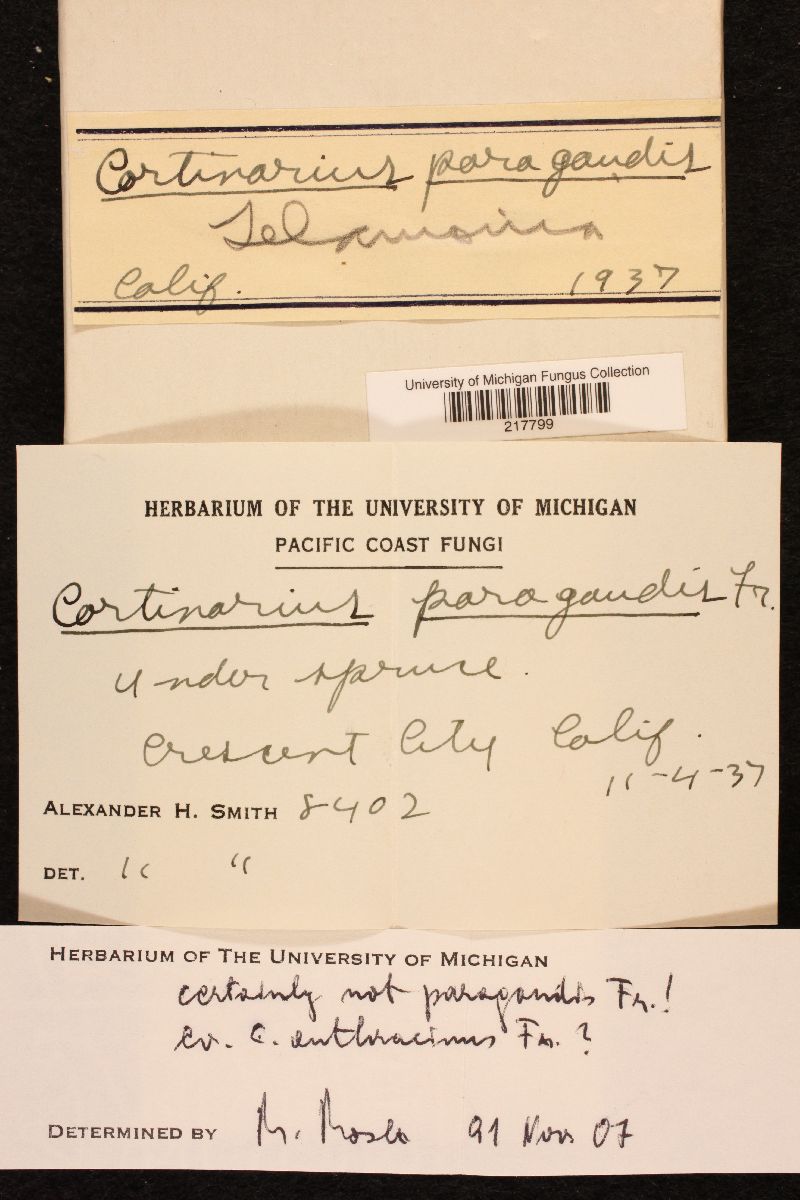 Cortinarius paragaudis
Telamonia
Calif. 1937
University of Michigan Fungus Collection
217799
HERBARIUM OF THE UNIVERSITY OF MICHIGAN
PACIFIC COAST FUNGI
Cortinarius paragaudis Fr.
under spruce.
Crescent City Calif.
11-4-37
ALEXANDER H. SMITH 8402
DET. " "
HERBARIUM OF THE UNIVERSITY OF MICHIGAN
certainly not paragaudis Fr.!
ev. C. anthracinus Fr. ?
DETERMINED BY M. Moser 91 Nov 07